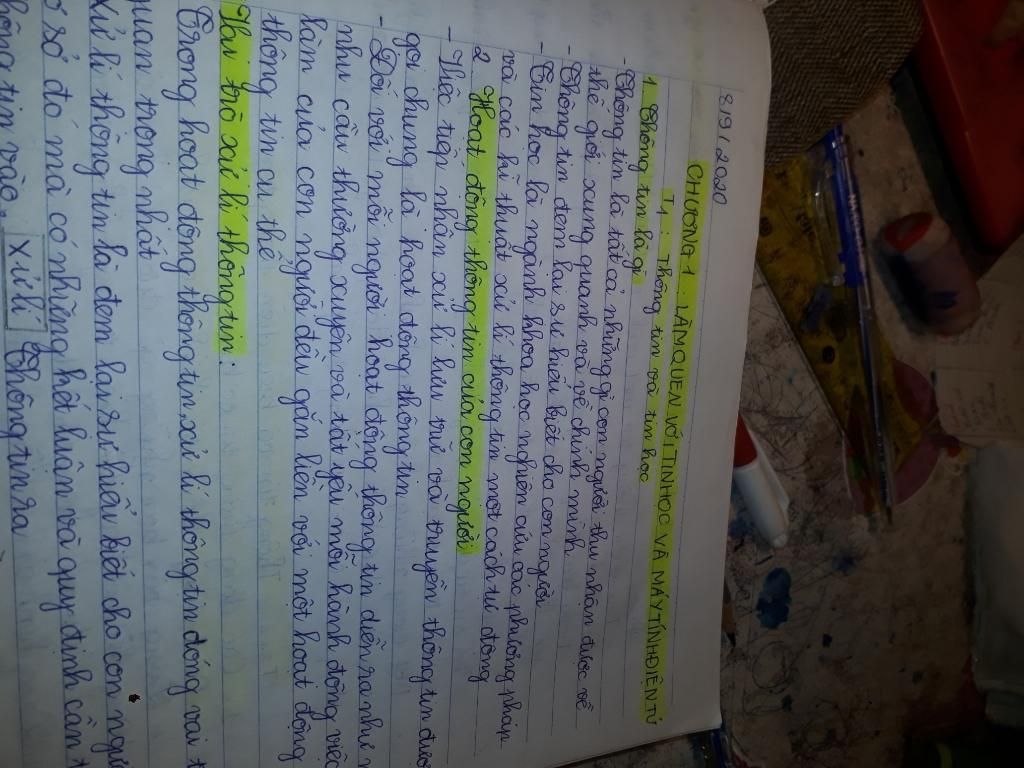 8/9/2020
CHƯƠNG 1: LÀM QUEN VỚI TIN HỌC VÀ MÁY TÍNH ĐIỆN TỬ
T1: Thông tin và tin học
1. Thông tin là gì
- Thông tin là tất cả những gì con người thu nhận được về
thế giới xung quanh và về chính mình
- Thông tin đem lại sự hiểu biết cho con người
- Tin học là ngành khoa học nghiên cứu các phương pháp
và các kĩ thuật xử lí thông tin một cách tự động
2. Hoạt động thông tin của con người
- Việc tiếp nhận xử lí lưu trữ và truyền thông tin được
gọi chung là hoạt động thông tin
- Đối với mỗi người hoạt động thông tin diễn ra như
nhu cầu thường xuyên và tất yếu mỗi hành động việc
làm của con người đều gắn liền với một hoạt động
thông tin cụ thể
Vai trò xử lí thông tin:
Trong hoạt động thông tin xử lí thông tin đóng vai t
quan trọng nhất
Xử lí thông tin là đem lại sự hiểu biết cho con người
sở đó mà có những kết luận và quy định cần t
thông tin vào Xử lí Thông tin ra